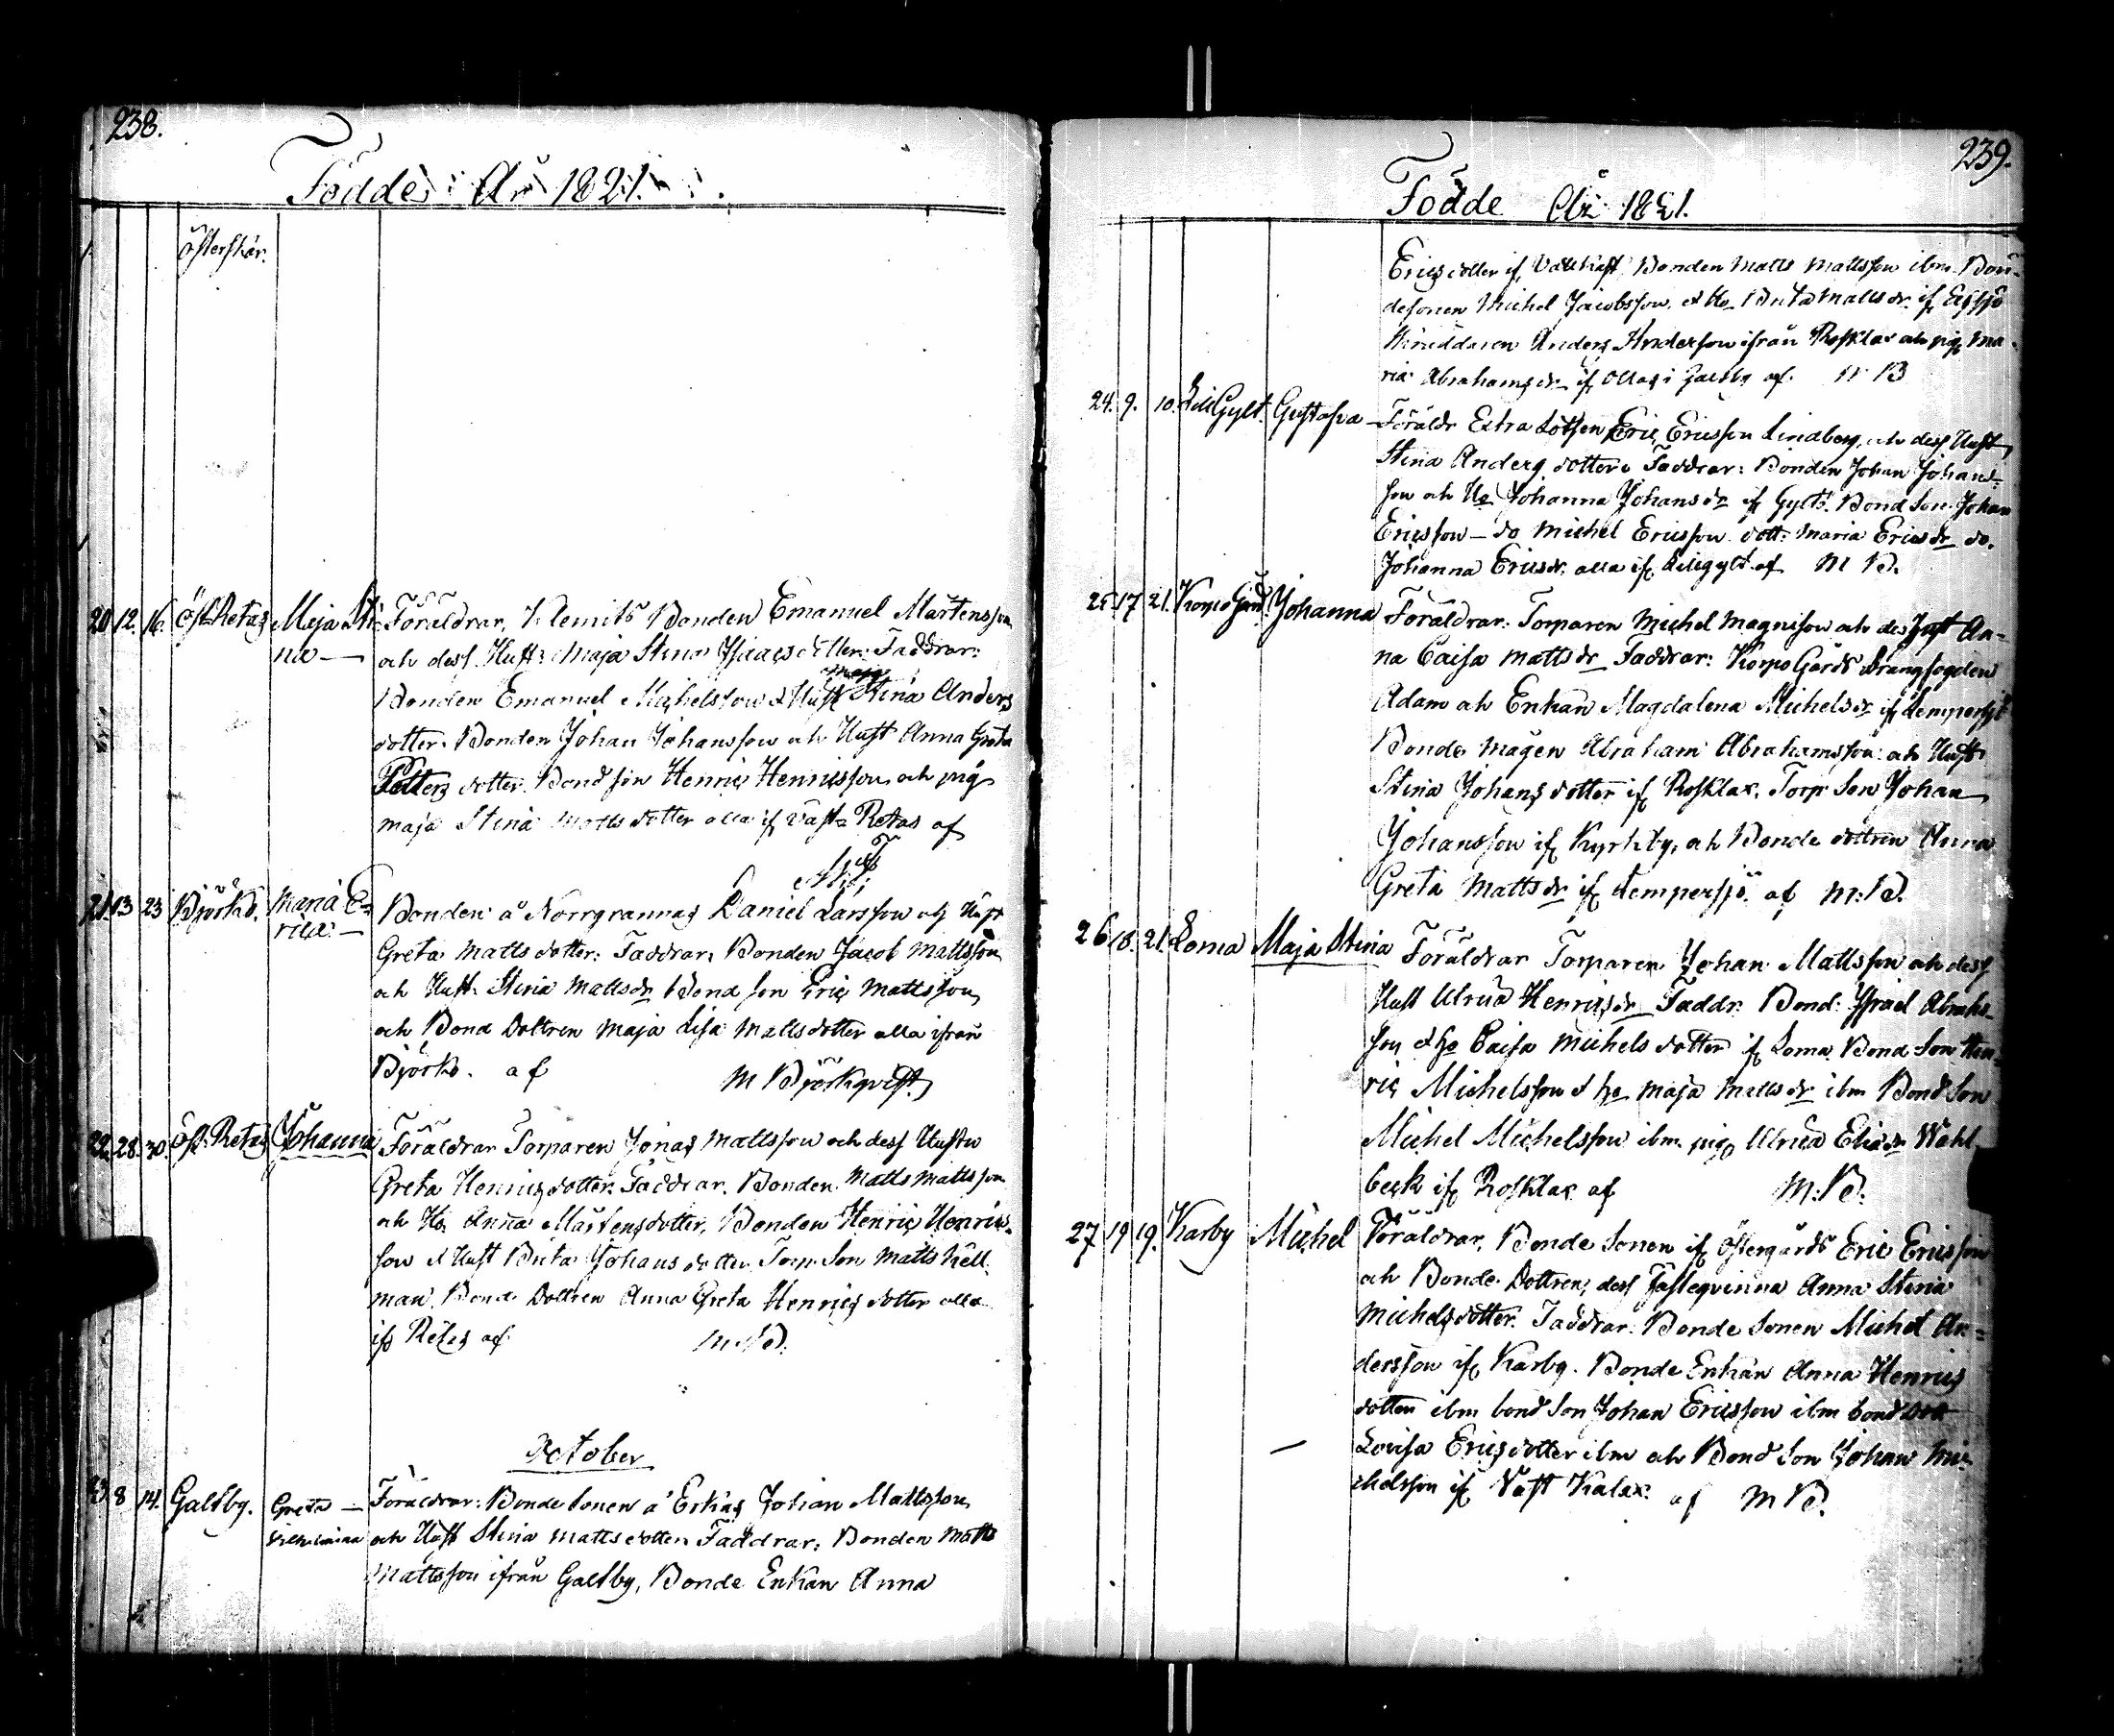 238.
Födde i År 1821.
Österskär.
20 12. 16. Öst. Retas Maja Sti- Föräldrar, Klemits Bonden Emanuel Mårtensson
na — och dess Hust: Maja Stina Isaacs dotter. Faddrar:
Maja
Bonden Emanuel Michelsson & Hust Stina Anders
dotter. Bonden Johan Johansson och Hust Anna Greta
Petters dotter. Bond son Henric Henricsson och pig
Maja Stina Matts dotter alla if Väst Retas af
21 13 23 Björkö. Maria E-
rica. — Bonden å Norrgrannas Daniel Larsson och Hust
Greta Matts dotter: Faddrar, Bonden Jacob Mattsson
och Hust. Stina Matts dr Bond son Eric Mattsson
och Bond Dottren Maja Lisa Matts dotter alla ifrån
Björkö. af M Björkqvist
22. 28. 30. Öst. Retas Johanna Föräldrar Torparen Jonas Mattsson och dess Hustru
Greta Henrics dotter. Faddrar. Bonden Matts Mattsson
och Ho Anna Mårtens dotter, Bonden Henric Henrics-
son & Hust Brita Johans dotter Torp. Son Matts Hell
man Bond Dottren Anna Greta Henrics dotter alla
if Retas af M. B.
October
23 8 14. Galtby. Greta — Föräldrar: Bonde Sonen å Erkas Johan Mattsson
Vilhelmina och Hust Stina Matts dotter. Faddrar: Bonden Matts
Mattsson ifrån Galtby, Bonde Enkan Anna
239.
Födde År 1821.
Erics dotter if Bonden Matts Mattsson ibm. Bon-
desonen Michel Jacobsson, & Ho Brita Matts dr. if
Skräddaren Anders Andersson ifrån Rosklax och pig Ma-
ria Abrahams dr if Ollas i Galtby af. M B
24. 9. 10. Lill Gylt. Gustafva — Föräldr Extra Lotsen Eric Ericsson Lindberg, och dess Hust
Stina Anders dotter. Faddrar: Bonden Johan Johans-
son och Ho Johanna Johans dr if Gylt. Bond Son. Johan
Ericsson — do Michel Ericsson dott: Maria Erics dr do.
Johanna Erics dr. alla if. Lillgylt. af M B.
25 17 21. Korpo Gård Johanna Föräldrar. Torparen Michel Magnusson och des Hust An-
na Caisa Matts dr Faddrar: Korpo Gårds Drängfogden
Adam och Enkan Magdalena Michels dr if Lempersjö
Bonde Mågen Abraham Abrahamsson och Hust
Stina Johans dotter if Rosklax. Torp Son Johan
Johansson if Kyrkby, och Bonde dottren Anna
Greta Matts dr if Lempersjö. af M: B.
26 18. 21. Loma Maja Stina Föräldrar Torparen Johan Mattsson och dess
Hust Ulrica Henrics dr Faddr. Bond: Israel Abrahs-
son & Ho Caisa Michels dotter if Loma, Bond Son Hen-
ric Michelsson & ho Maja Matts dr ibm Bond Son
Michel Michelsson ibm. pig Ulrica Elias dr Wahl
beck if Rosklax af M: B.
27 19 19. Karby Michel Föräldrar, Bonde Sonen if Östergårds Eric Ericsson
och Bonde Dottren, dess Fästeqvinna Anna Stina
Michels dotter. Faddrar: Bonde Sonen Michel An-
dersson if Karby. Bonde Enkan Anna Henrics
dotter ibm bond Son Johan Ericsson ibm bond dott
Lovisa Erics dotter ibm och Bond Son Johan Mi-
chelsson if Väst Kalax. af M B.